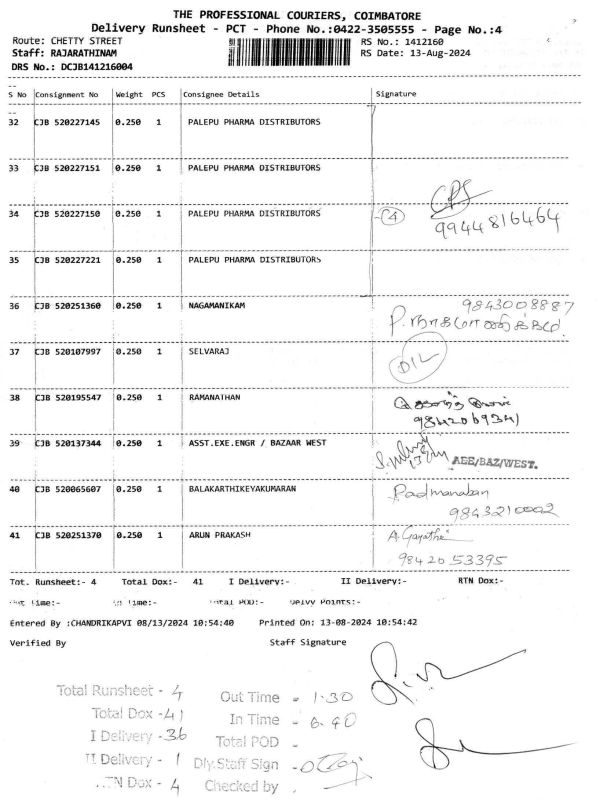 THE PROFESSIONAL COURIERS, COIMBATORE
Delivery Runsheet - PCT - Phone No.:0422-3505555 - Page No.:4
Route: CHETTY STREET RS No.: 1412160
Staff: RAJARATHINAM RS Date: 13-Aug-2024
DRS No.: DCJB141216004
S No Consignment No Weight PCS Consignee Details Signature
32 CJB 520227145 0.250 1 PALEPU PHARMA DISTRIBUTORS
33 CJB 520227151 0.250 1 PALEPU PHARMA DISTRIBUTORS
34 CJB 520227150 0.250 1 PALEPU PHARMA DISTRIBUTORS
9944816464
35 CJB 520227221 0.250 1 PALEPU PHARMA DISTRIBUTORS
36 CJB 520251360 0.250 1 NAGAMANIKAM 9843008887
37 CJB 520107997 0.250 1 SELVARAJ
D/L
38 CJB 520195547 0.250 1 RAMANATHAN
9842069341
39 CJB 520137344 0.250 1 ASST.EXE.ENGR / BAZAAR WEST
AEE/BAZ/WEST.
40 CJB 520065607 0.250 1 BALAKARTHIKEYAKUMARAN Padmanaban
9843210002
41 CJB 520251370 0.250 1 ARUN PRAKASH A. Gayathri
98420 53395
Tot. Runsheet:- 4 Total Dox:- 41 I Delivery:- II Delivery:- RTN Dox:-
Out Time:- In Time:- Total POD:- Delvy Points:-
Entered By :CHANDRIKAPVI 08/13/2024 10:54:40 Printed On: 13-08-2024 10:54:42
Verified By Staff Signature
Total Runsheet - 4 Out Time - 1.30
Total Dox - 41 In Time - 6.40
I Delivery - 36 Total POD -
II Delivery - 1 Dly.Staff Sign -
RTN Dox - 4 Checked by